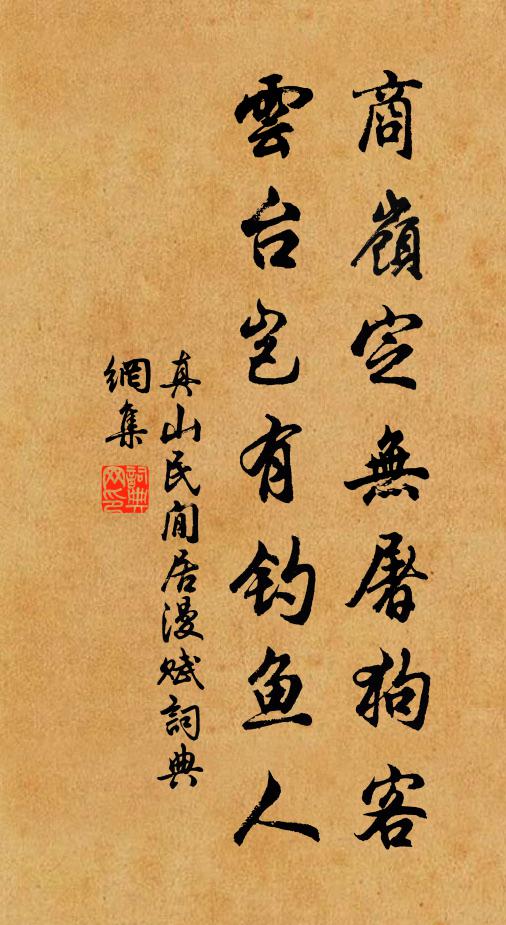 商嶺定無屠狗客
雲台豈有钓鱼人
真山民閒居漫赋詞典
網集
詞典网印